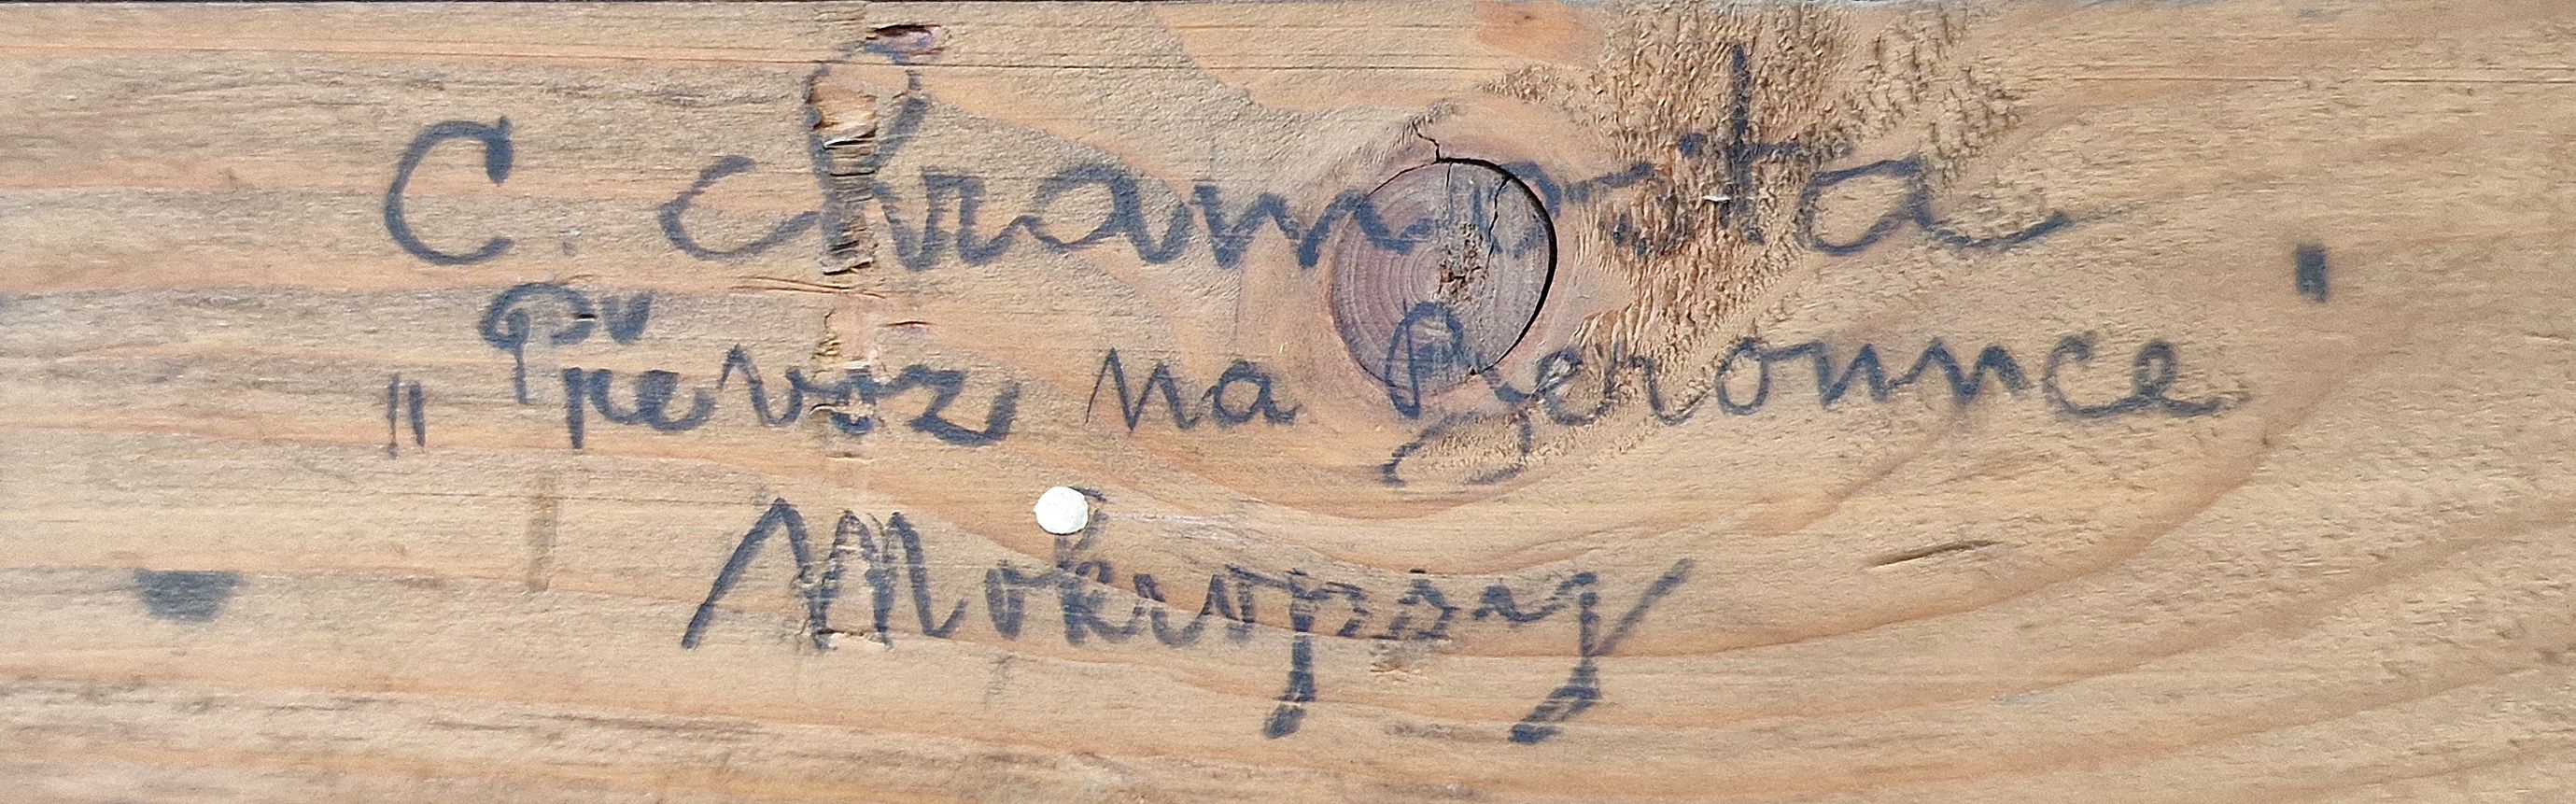 C. Chramosta
„Převoz na Berounce"
Mokropsy